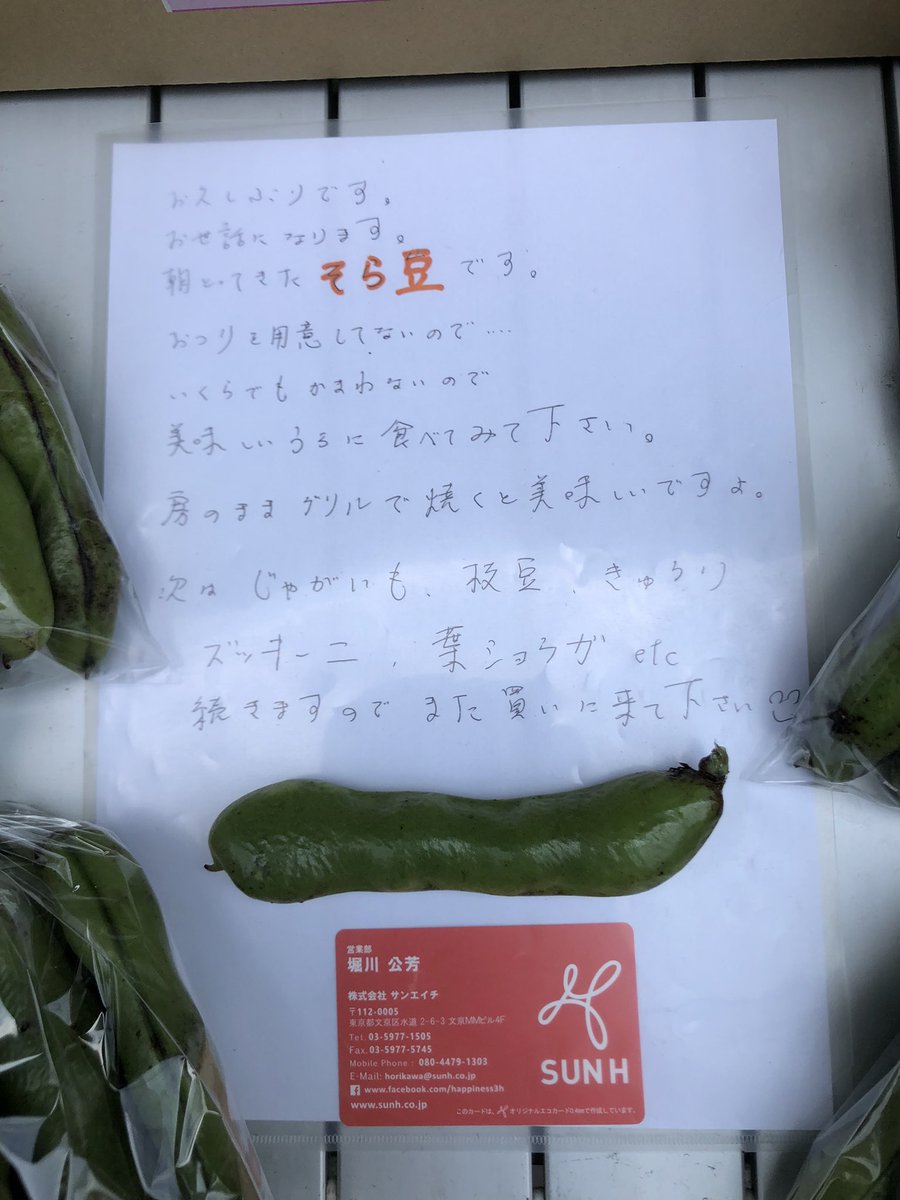 お久しぶりです。
お世話になります。
朝とってきた そら豆 です。
おつりを用意してないので‥‥
いくらでもかまわないので
美味しいうちに食べてみて下さい。
房のままグリルで焼くと美味しいですよ。
次は じゃがいも、枝豆、きゅうり
ズッキーニ、葉ショウガ etc
続きますので また買いに来て下さい
営業部
堀川 公芳
株式会社 サンエイチ
〒112-0005
東京都文京区水道 2-6-3 文京MMビル4F
Tel. 03-5977-1505
Fax. 03-5977-5745
Mobile Phone : 080-4479-1303
E-Mail: horikawa@sunh.co.jp
www.facebook.com/happiness3h
www.sunh.co.jp
SUN H
このカードは、オリジナルエコカード0.4㎜で作成しています。